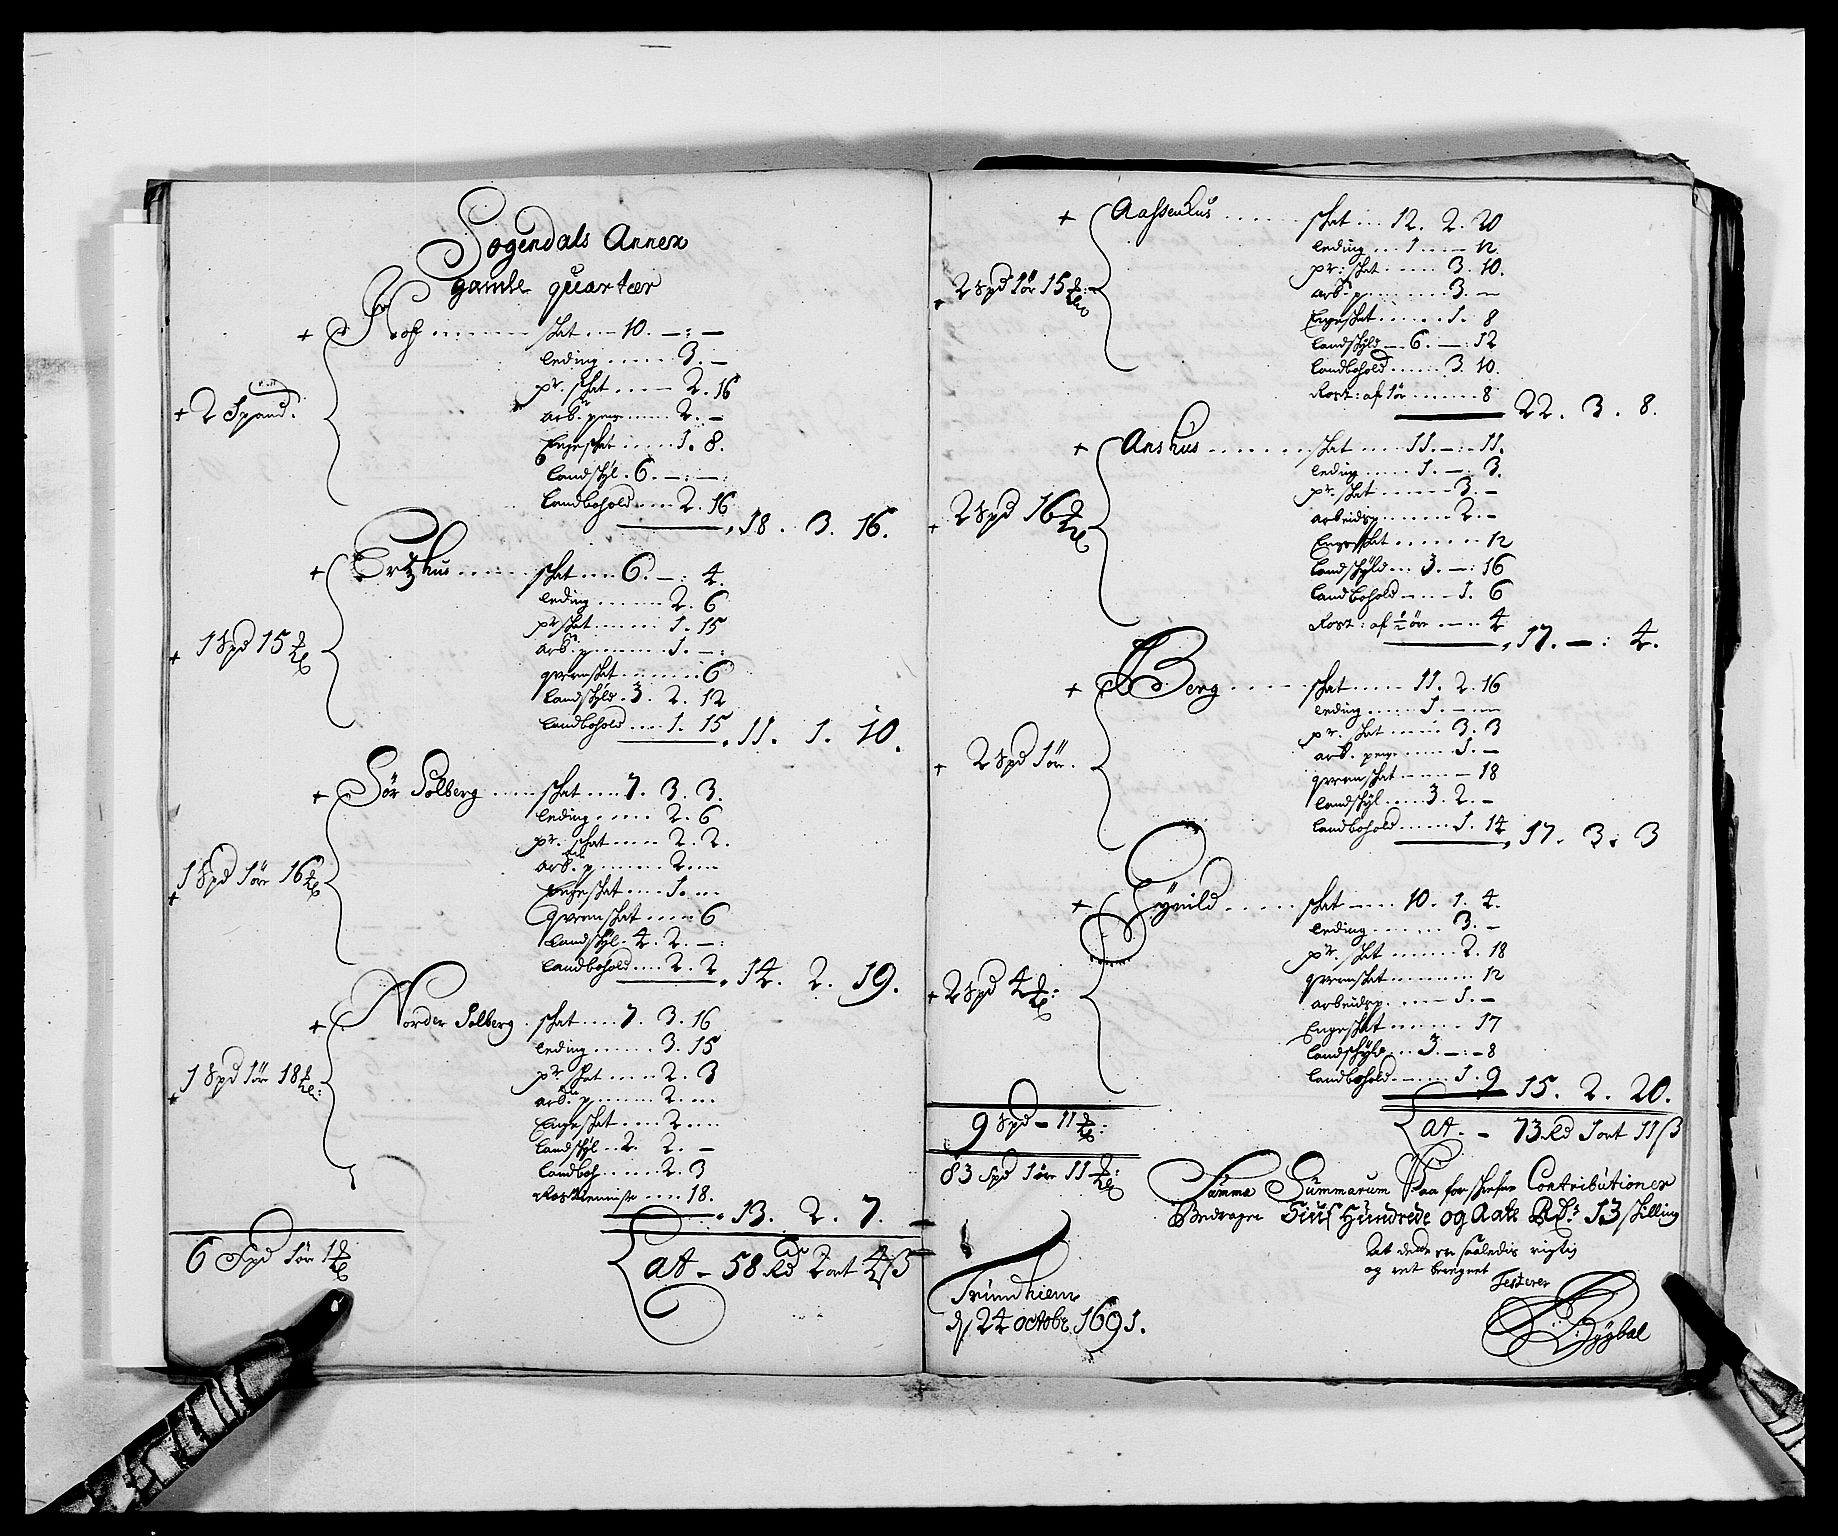 Sogendals Annex
gamle quartær
+ Hof ...... skat .... 10. — : —
leding ...... 3. —
pr. skat ..... 2. 16
+ 2 Spand. arb. penge ..... 2. —
Engeskat ..... 1. 8.
landskyl. 6. — : — :
landbohold .... 2. 16
18. 3. 16.
+ Ertzhus ...... skat .... 6. — : 4.
leding ....... 2. 6
pr skat ....... 1. 15
+ 1 Spd 15 arb. p ....... 1. — :
qvernskat ....... 6
landskyld. 3. 2. 12
landbohold .... 1. 15
11. 1. 10.
+ Sør Solberg ..... skat .... 7. 3. 3.
leding ...... 2. 6
pr. skat ..... 2. 2.
+ 1 Spd 1 ør 16 arb. p ....... 2. ...
Engeskat .... 1. ...
Qvernskat ..... 6
landskyl. 4. 2. — :
landbohold .... 2. 2
14. 2. 19.
+ Norder Solberg. skat .... 7. 3. 16
leding ...... 3. 15
+ 1 Spd 1 ør 18 pr. skat ..... 2. 3
arb. p ....... 2. ...
Engeskat .... 2. ...
landskyl .. 2. 2. —
landboh ...... 2. 3
Rostienniste .... 18.
13. 2. 7.
6 Spd 1 ør 1
at — 58 Rd 2 ort 4 ß
+ Aassenhus ...... skat ... 12. 2. 20
leding .... 1. — 12
+ 2 Spd 1 ør 15 pr: skat ..... 3. 10.
arb. p ........ 3. —
Engeskat ...... 1. 8
landskyld — 6. — : 12
landbohold ...... 3. 10.
Rost: af 1 ør ....... 8
22. 3. 8.
+ Anshus ....... skat .... 11. — : 11.
leding ..... 1. — . 3.
pr. skat ...... 3. —
+ 2 Spd 16 arbeidsp ....... 2. —
Engeskat ....... 12
landskyld ... 3. — : 16
landbohold ..... 1. 6
Rost: af ½ ør .... 4
17. — : 4.
+ Berg ..... skat ..... 11. 2. 16
leding ..... 1. — —
pr. skat ..... 3. 3
arb. penge ..... 1. —
+ 2 Spd 1 ør. qvernskat ..... 18
landskyl ..... 3. 2. —
landbohold ...... 1. 14
17. 3. 3
+ skat ..... 10. 1. 4.
leding ........ 3. —
pr. skat ....... 2. 18
qvernskat ........ 12
+ 2 Spd 4 arbeidsp. ..... 1. —
Engeskat ....... 17
landskyld ... 3. — : — 8
landbohold ..... 1. 9
15. 2. 20.
9 Spd — 11
at. — 73 Rd 1 ort 11 ß
83 Spd 1 ør 11
Summa Summarum Paa forskrefne Contributioner
Bedrager Siuf Hundrede og Aate Rd: 13 skilling
dette er saaledis rigtig
og ret beregnet
Testerer
Trundhiem
d 24 octobr. 1691.